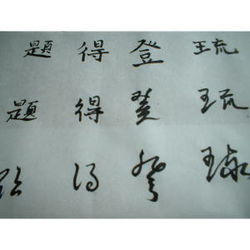 題 得 登 琉
題 得 登 琉
題 得 登 琉